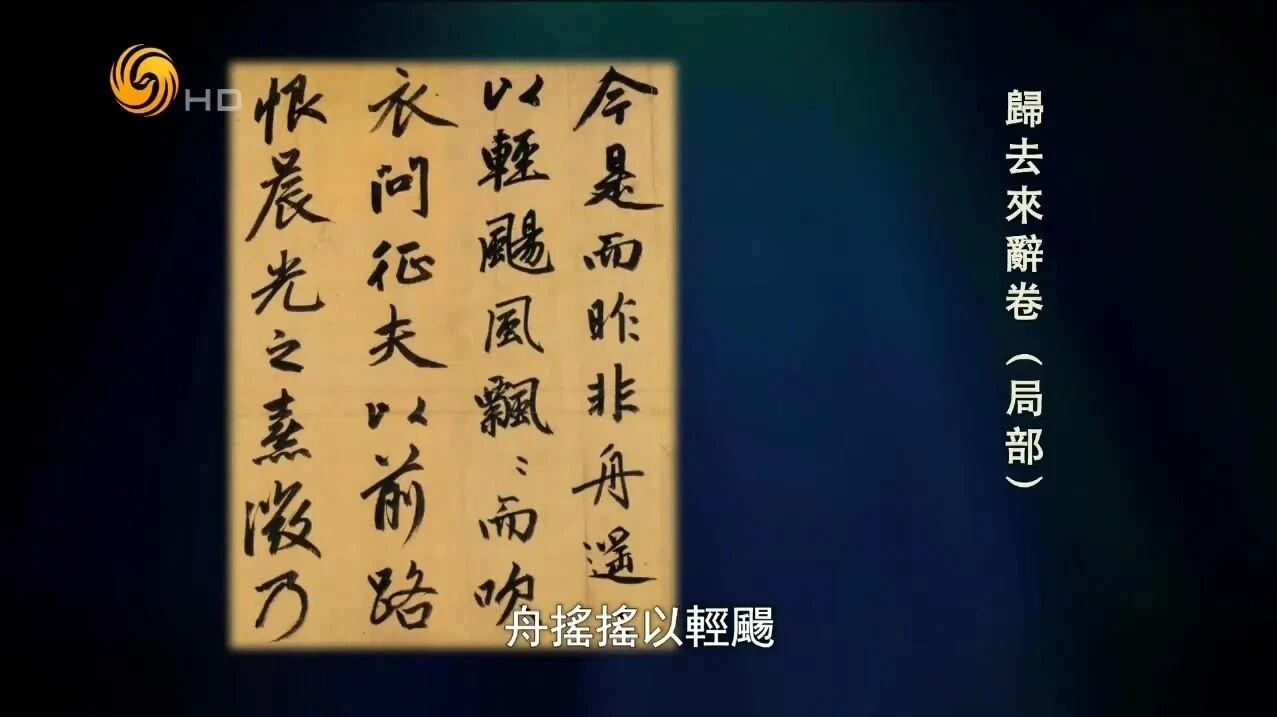 HD
歸去來辭卷（局部）
今是而昨非舟遥
以輕颺風飄〻而吹
衣問征夫以前路
恨晨光之熹微乃
舟搖搖以輕颺